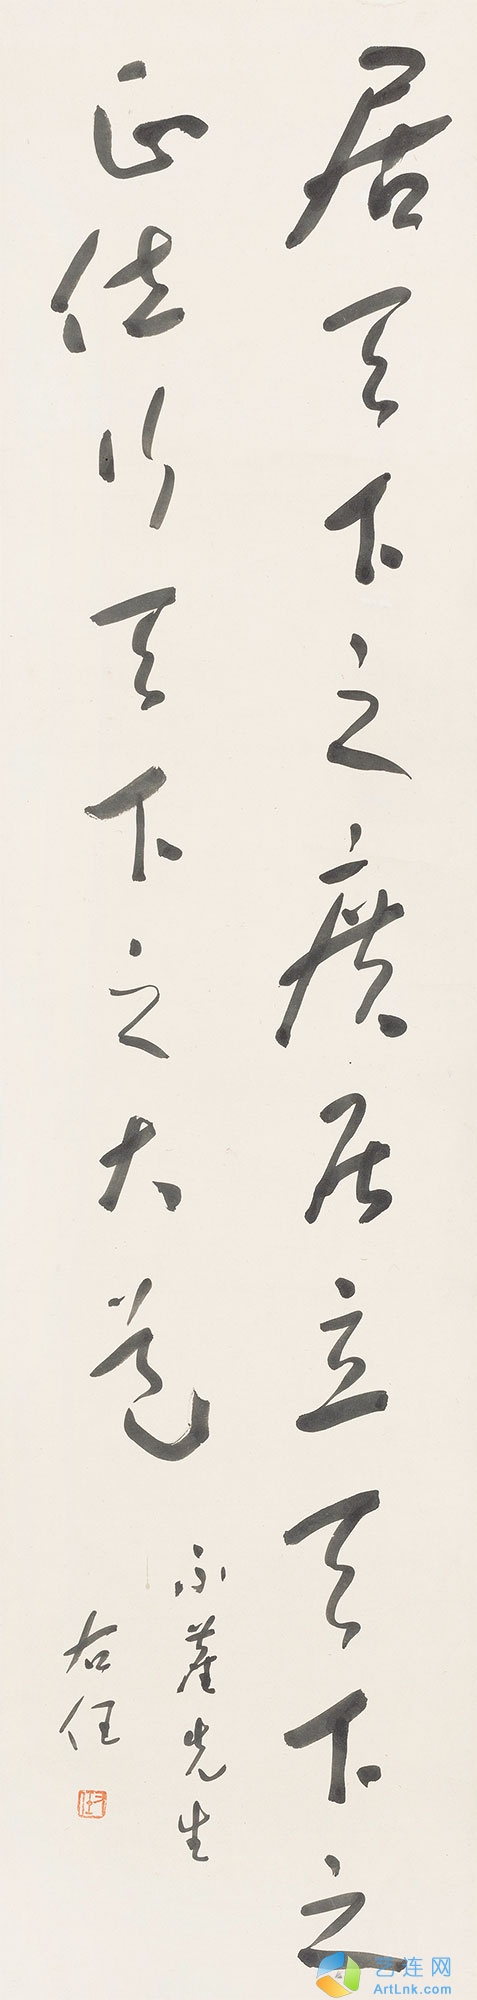 居天下之廣居立天下之
正位行天下之大道
先生
右任
艺连网
ArtLnk.com